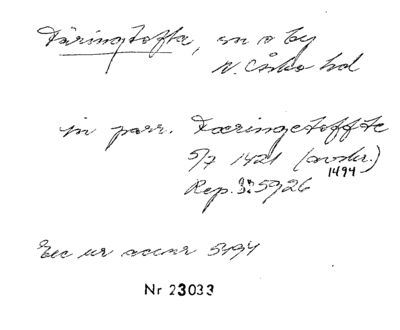 Färingtofta, sn o by
N. Åsbo hd
in parr. Færingetoffte
5/7 1421 (avskr.)
1494
Rep. 3: 5926
Exc ur accnr 3494
Nr 23033